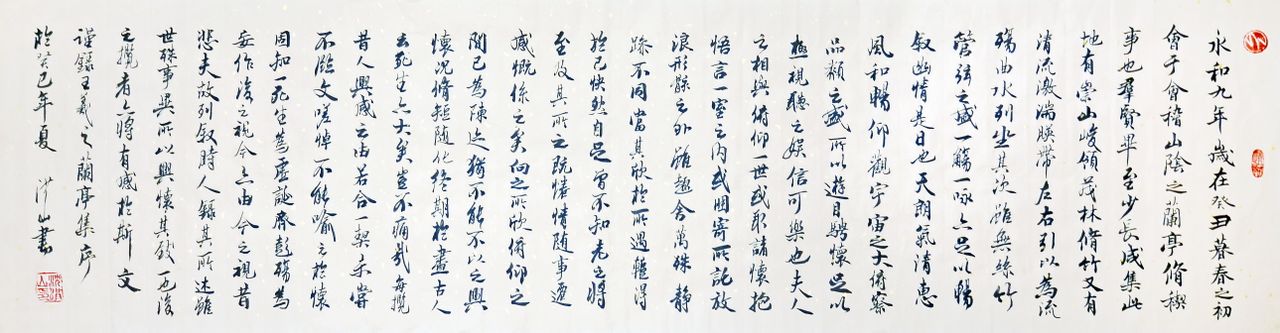 永和九年歲在癸丑暮春之初
會于會稽山陰之蘭亭脩稧
事也羣賢畢至少長咸集此
地有崇山峻領茂林脩竹又有
清流激湍暎帶左右引以為流
觴曲水列坐其次雖無絲竹
管弦之盛一觴一詠亦足以暢
叙幽情是日也天朗氣清惠
風和暢仰觀宇宙之大俯察
品類之盛所以遊目騁懷足以
極視聽之娛信可樂也夫人
之相與俯仰一世或取諸懷抱
悟言一室之內或因寄所託放
浪形骸之外雖趣舍萬殊靜
躁不同當其欣於所遇輙得
於己快然自足曾不知老之將
至及其所之既惓情隨事遷
感慨係之矣向之所欣俯仰之
閒已為陳迹猶不能不以之興
懷況脩短隨化終期於盡古人
云死生亦大矣豈不痛哉每攬
昔人興感之由若合一契未嘗
不臨文嗟悼不能喻之於懷
固知一死生為虛誕齊彭殤為
妄作後之視今亦由今之視昔
悲夫故列叙時人錄其所述雖
世殊事異所以興懷其致一也後
之攬者亦將有感於斯文
謹錄王羲之蘭亭集序
於癸巳年夏 山書